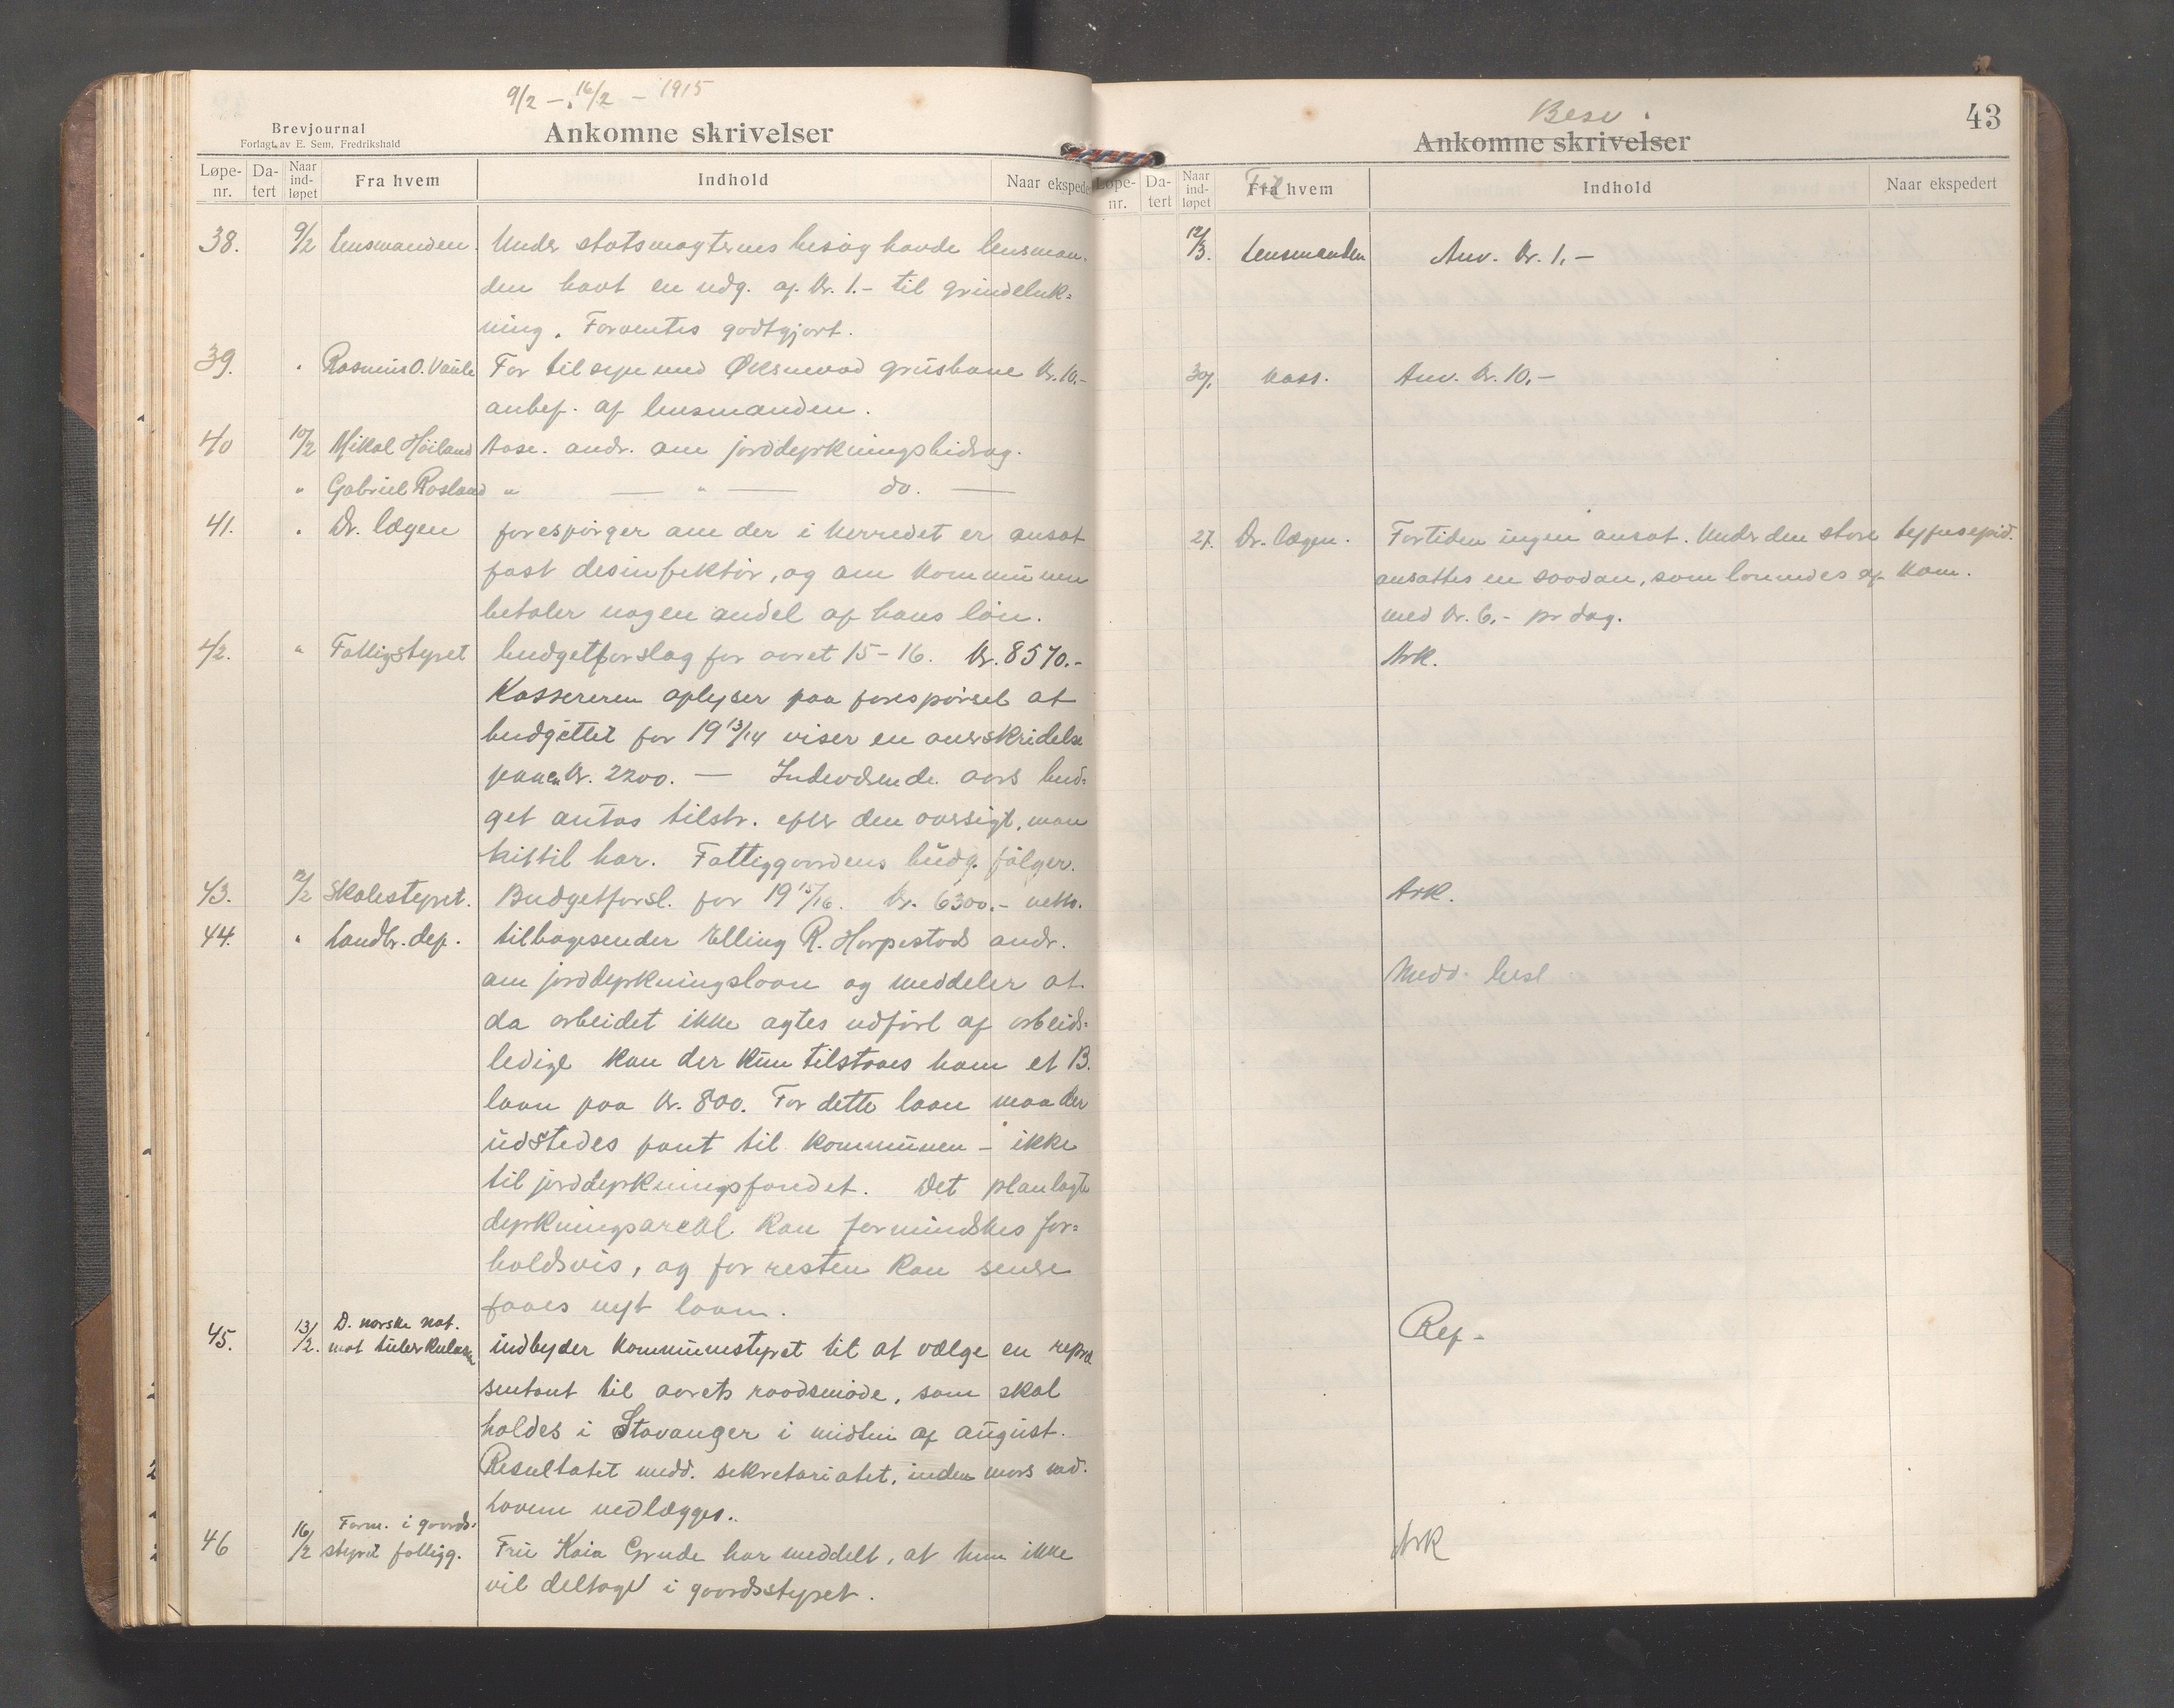 9/2 – 16/2 – 1915
Brevjournal
Forlagt av E. Sem, Fredrikshald
Ankomne skrivelser
Løpe-nr. Da-tert Naar ind-løpet Fra hvem Indhold Naar ekspedert
38. 9/2 Lensmanden. Under statsmagternes besøg havde lensman-
den havt en udg. af kr. 1.- til grindeluk-
ning. Forventes godtgjort.
39. " Rasmus O. Vaule For tilsyn med Øksnevad grusbane kr. 10.-
anbef. af lensmanden.
40 10/2 Mikal Høiland Aase. andr. om jorddyrkningsbidrag.
" Gabriel Rosland " — " — do. —
41. " Dr. lægen forespörger om der i herredet er ansat
fast desinfektör, og om kommunen
betaler nogen andel af hans lön.
42. " Fattigstyret budgetforslag for aaret 15-16. kr. 8570.-
Kassereren oplyser paa forespörsel at
budgettet for 19 13/14 viser en overskridelse
paa ca. kr. 2200. — Indeværende aars bud-
get antas tilstr. efter den oversigt, man
hittil har. Fattiggaardens budg. fölger.
43. 12/2 Skolestyret. Budgetforsl. for 19 15/16. kr. 6300.- netto.
44. " Landbr. dep. tilbagesender Elling R. Horpestads andr.
om jorddyrkningslaan og meddeler at
da arbeidet ikke agtes udfört af arbeids-
ledige kan der kun tilstaaes ham et B.
laan paa kr. 800. For dette laan maa der
udstedes pant til kommunen – ikke
til jorddyrkningsfondet. Det planlagte
dyrkningsareal kan formindskes for-
holdsvis, og for resten kan senere
faaes nyt laan.
45. 13/2. D. norske nat.
mot tuberkulosen indbyder kommunestyret til at vælge en repræ
sentant til aarets raadsmöde, som skal
holdes i Stavanger i midten af august.
Resultatet medd. sekretariatet, inden mars md.
Lovene vedlægges.
46 16/2 Form. i gaards-
styret fattigg. Fru Kaia Grude har meddelt, at hun ikke
vil deltage i gaardsstyret.
43
Besv.
Ankomne skrivelser
Løpe-nr. Da-tert Naar ind-løpet Fra hvem Til Indhold Naar ekspedert
12/3. Lensmanden Anv. kr. 1.–
30/. kass. Anv. kr. 10.–
27. Dr. lægen. Fortiden ingen ansat. Under den store tyfusepid.
ansattes en saadan, som lönnedes af kom.
med kr. 6.- pr dag.
Ark.
Ark.
Medd. besl
Ref.
Ark